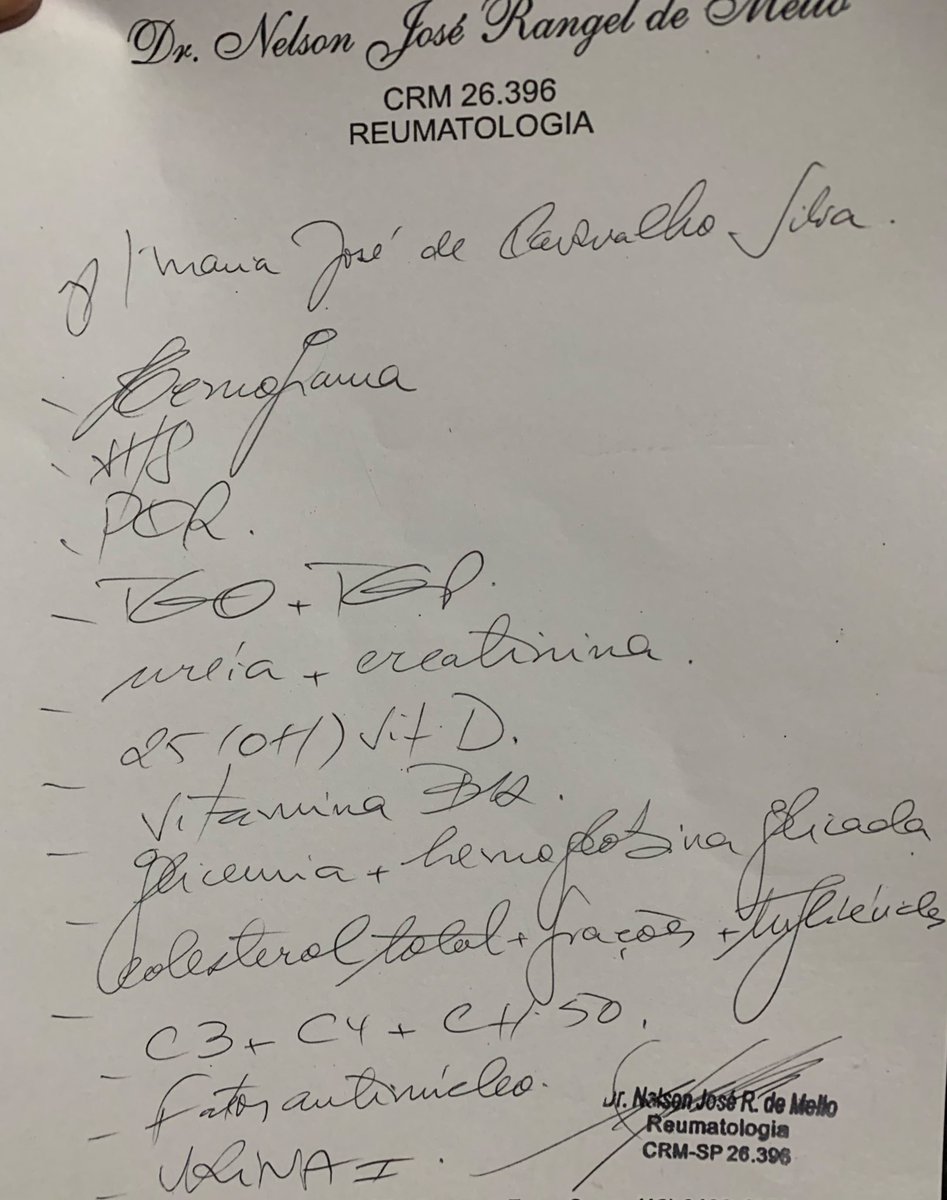 Dr. Nelson José Rangel de Mello
CRM 26.396
REUMATOLOGIA
p/ Maria José de Carvalho Silva.
- Hemograma
- VHS
- PCR.
- TGO + TGP.
uréia + creatinina.
- 25 (OH) Vit D.
- Vitamina B12.
- glicemia + hemoglobina glicada
- Colesterol total + frações + triglicérides
- C3 + C4 + CH 50.
- fator antinúcleo.
- URINA I.
Dr. Nelson José R. de Mello
Reumatologia
CRM-SP 26.396